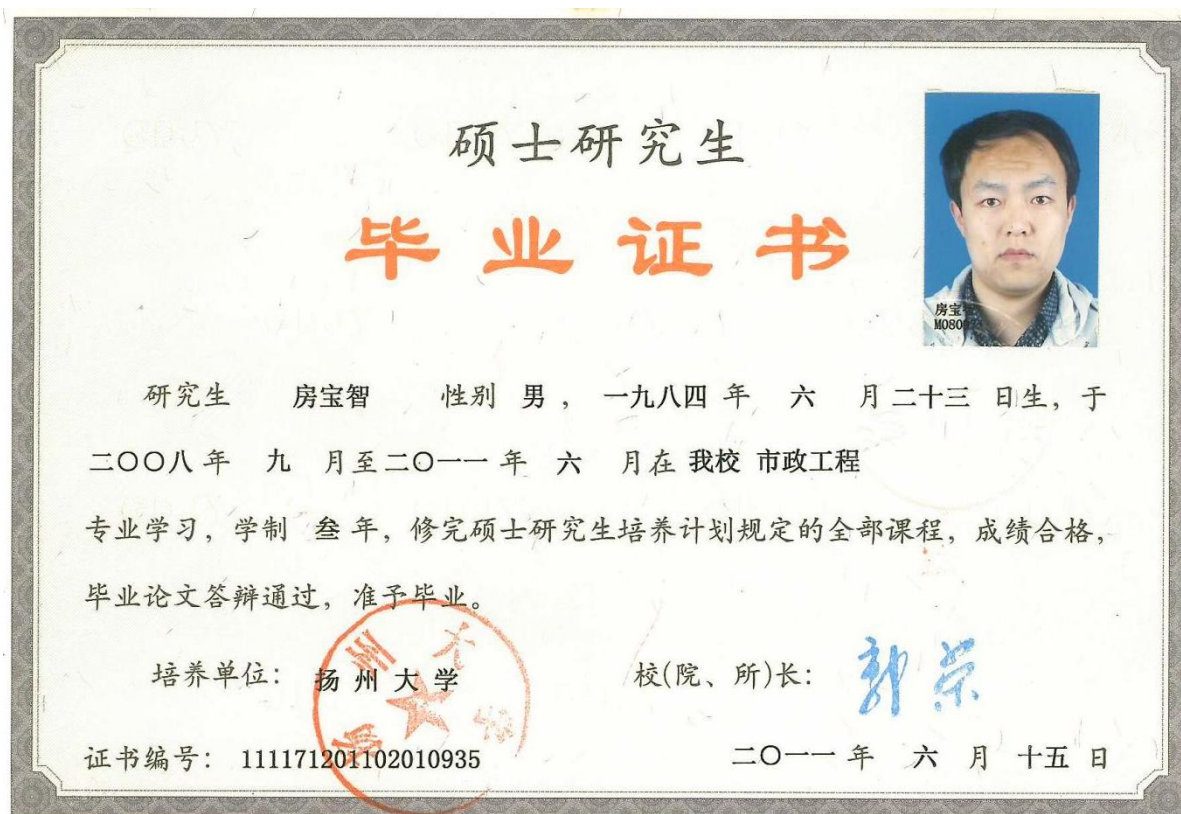 硕士研究生
毕业证书
房宝
研究生 房宝智 性别 男, 一九八四 年 六 月 二十三 日生, 于
二〇〇八 年 九 月至 二〇一一 年 六 月在 我校 市政工程
专业学习, 学制 叁 年, 修完硕士研究生培养计划规定的全部课程, 成绩合格,
毕业论文答辩通过, 准予毕业。
培养单位: 扬州大学 校(院、所)长: 郭荣
扬州大学
证书编号: 111171201102010935 二〇一一 年 六 月 十五 日